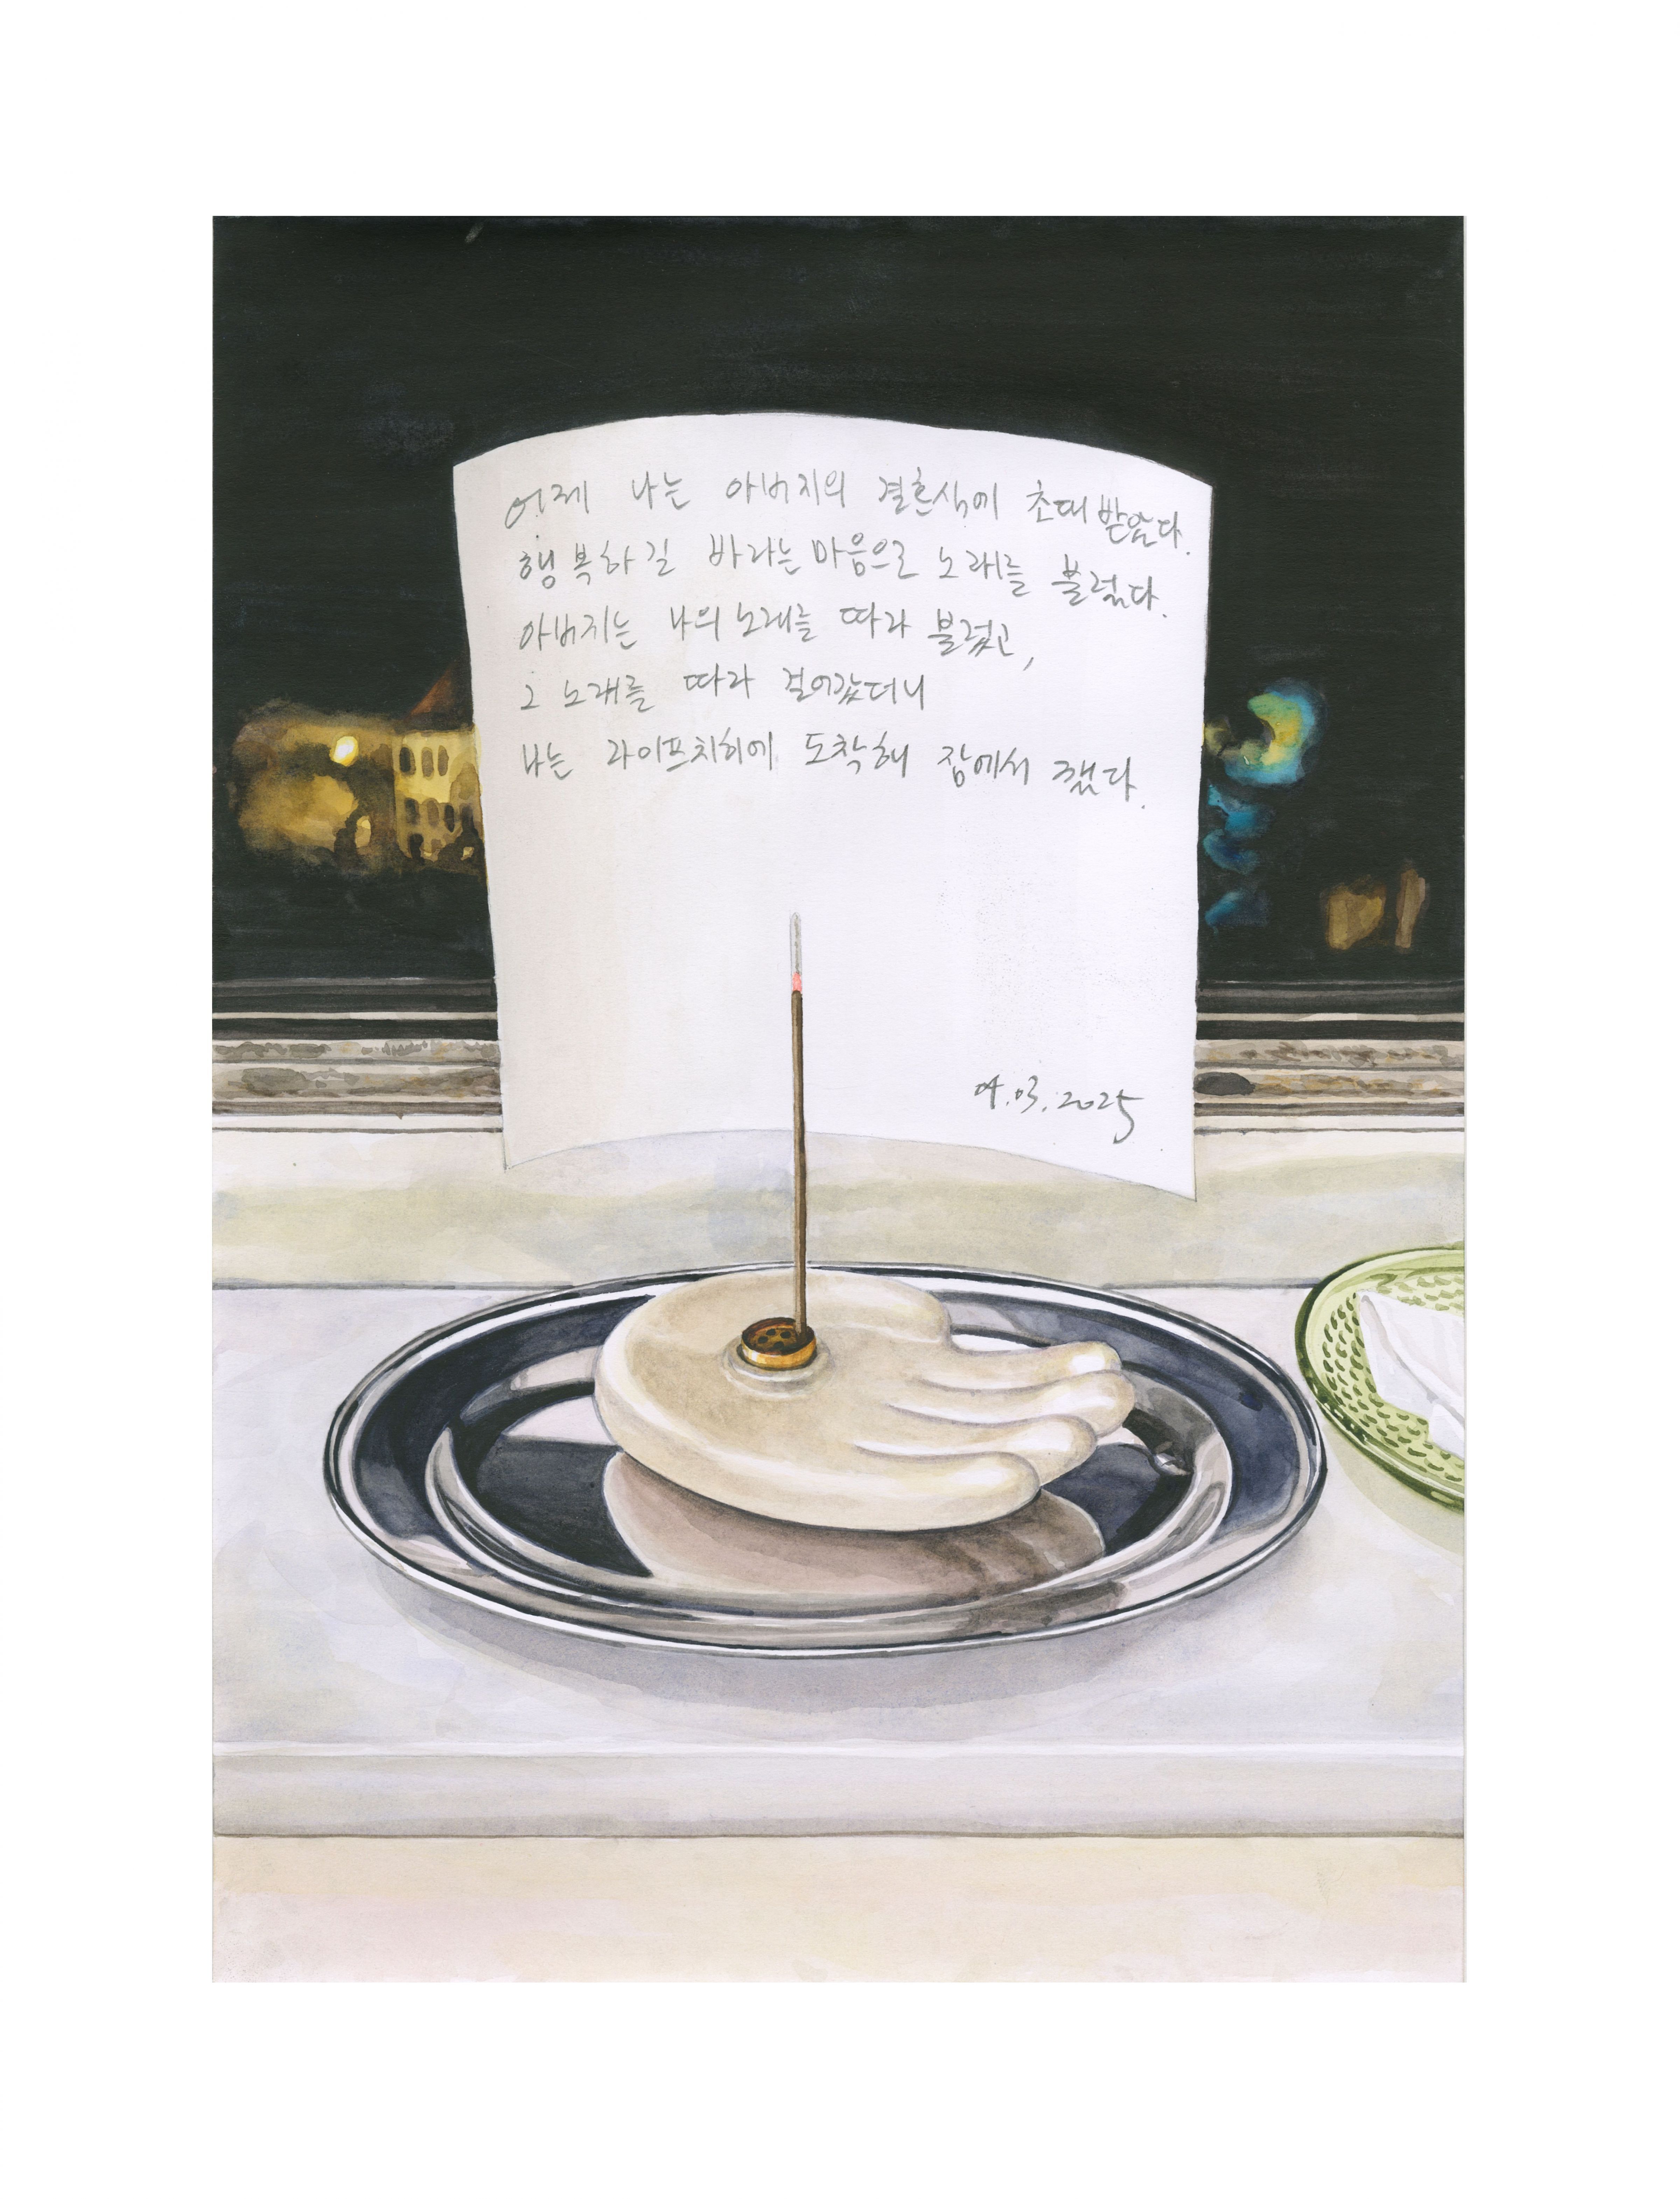 어제 나는 아버지의 결혼식에 초대 받았다.
행복하길 바라는 마음으로 노래를 불렀다.
아버지는 나의 노래를 따라 불렀고,
그 노래를 따라 걸어갔더니
나는 라이프치히에 도착해 잠에서 깼다.
04.03.2025